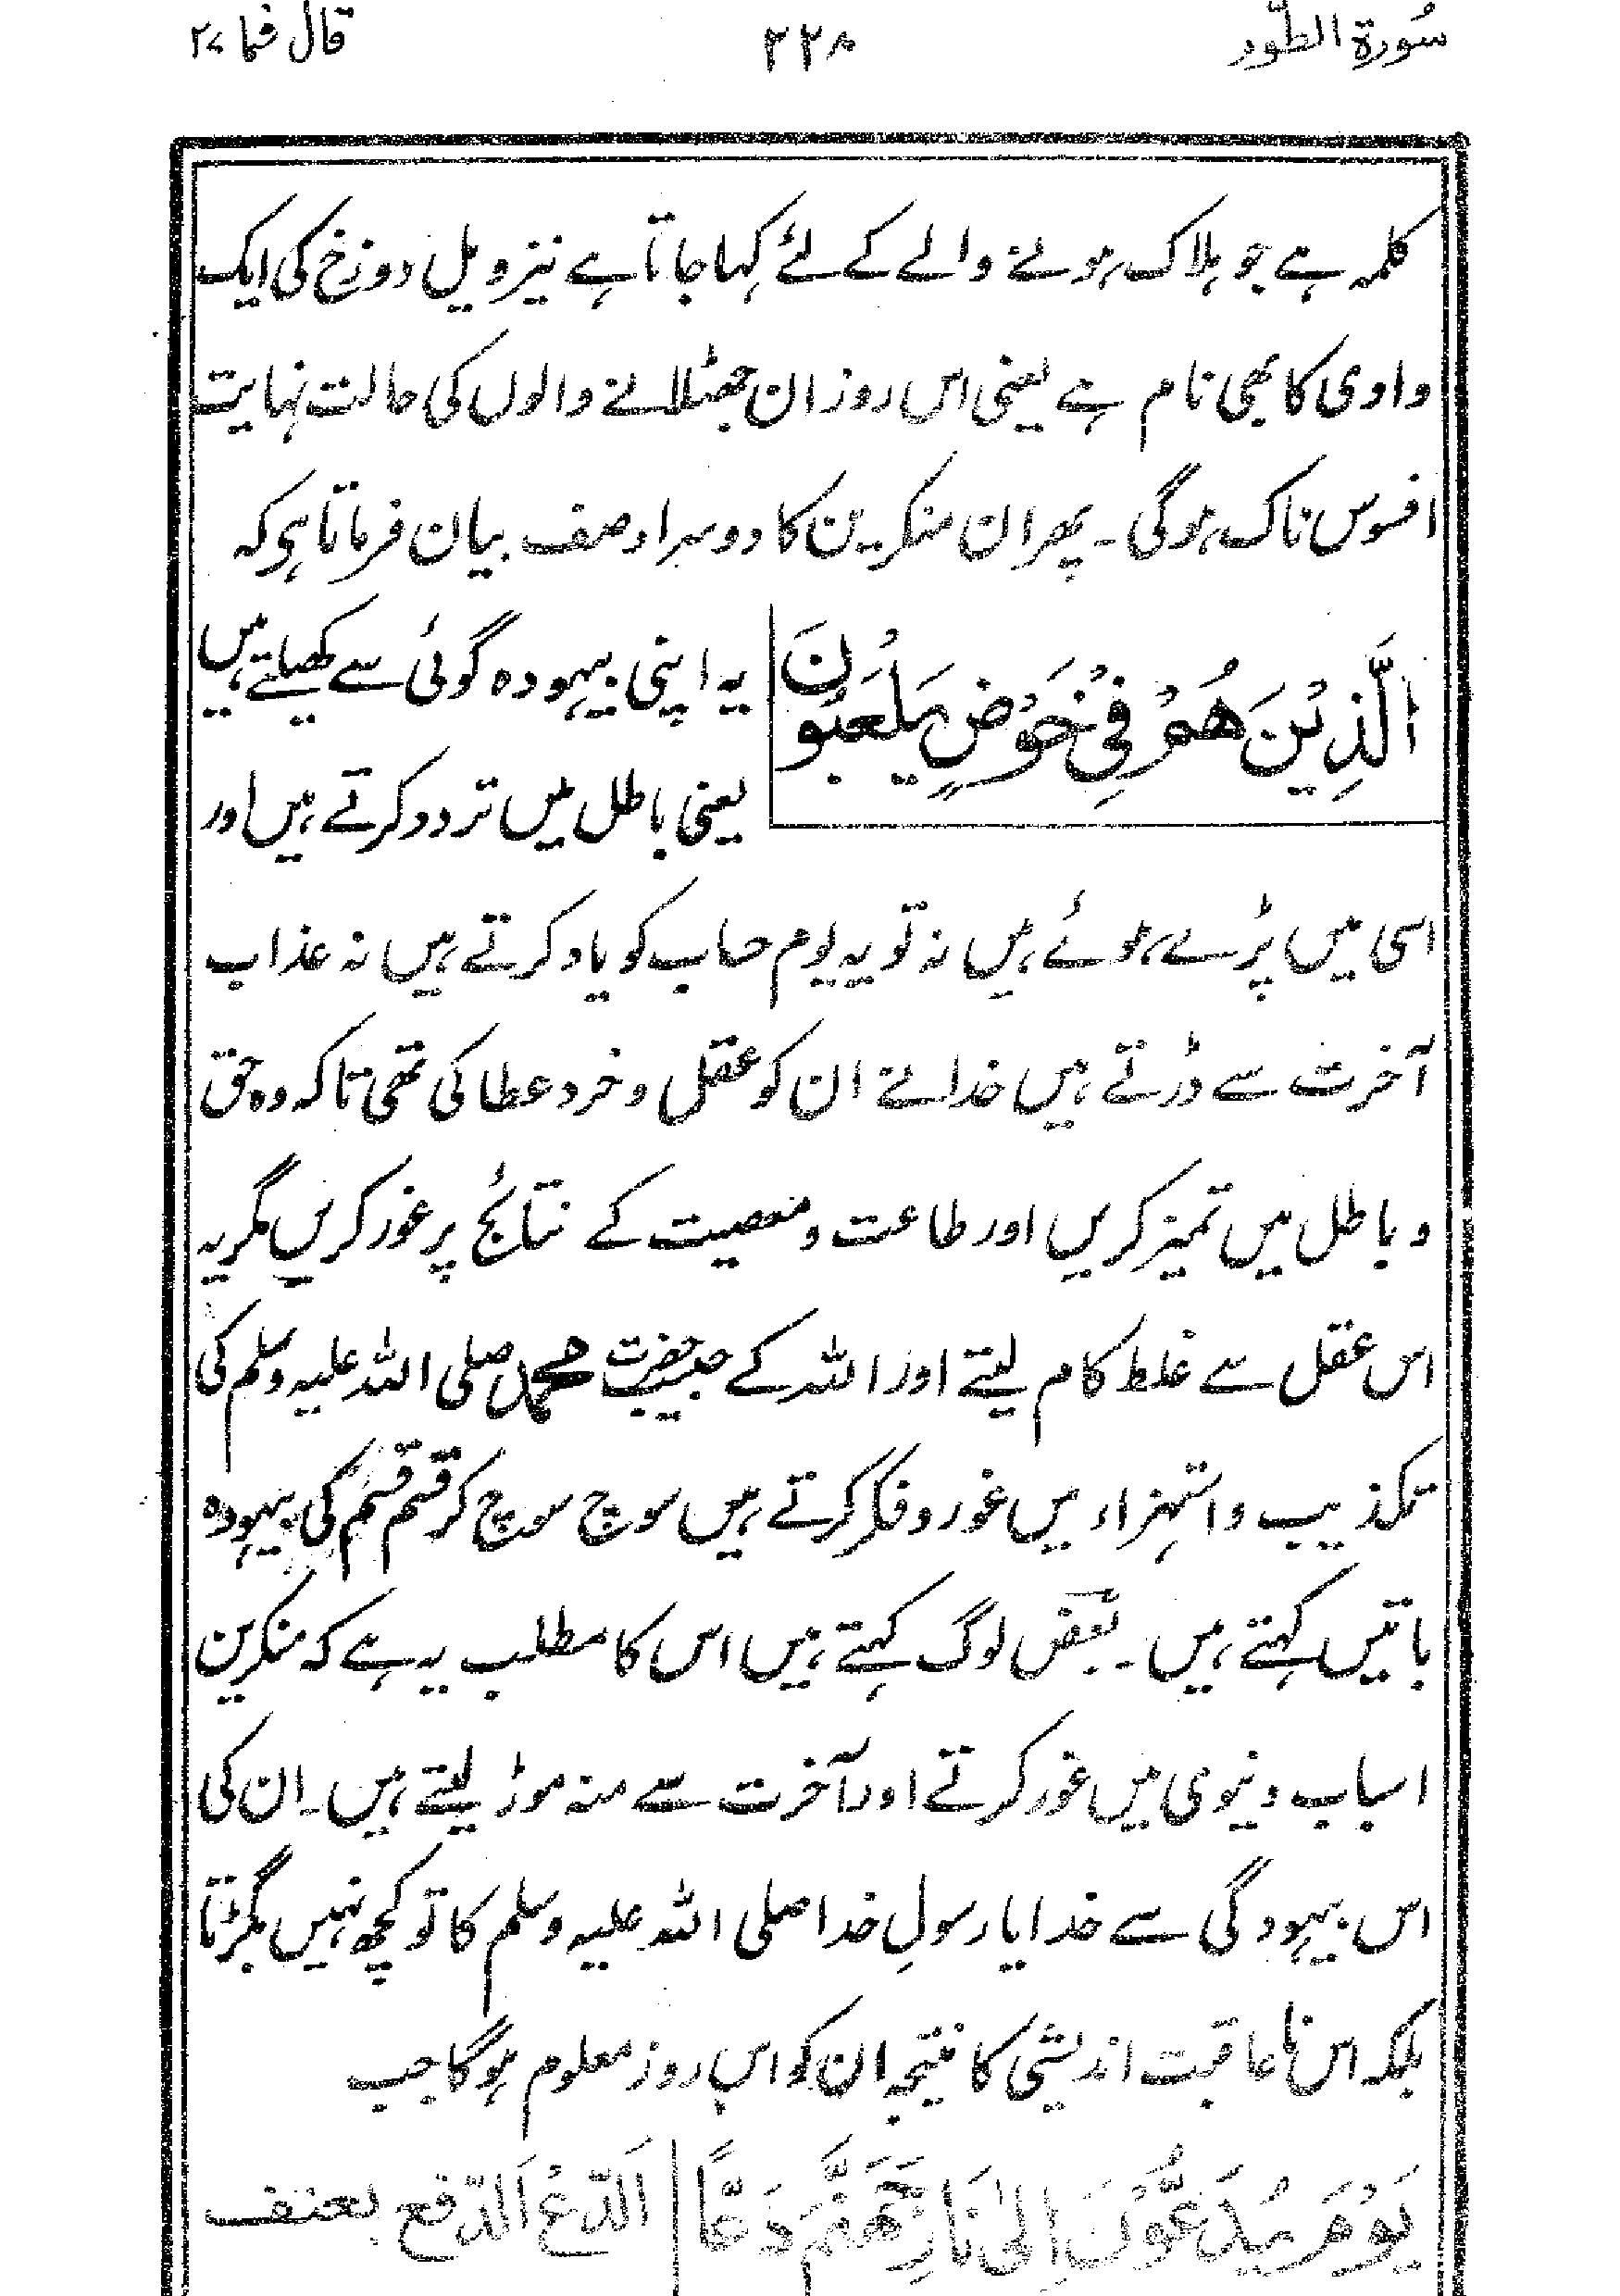 سُورة الطّور
۲۲۸
قال فما ۲۷
کلمہ ہے جو ہلاک ہونے والے کے لئے کہا جاتا ہے نیز ویل دوزخ کی ایک
وادی کا بھی نام ہے یعنی اس روز ان جھٹلانے والوں کی حالت نہایت
افسوس ناک ہوگی ۔ پھر ان منکرین کا دوسرا وصف بیان فرماتا ہی کہ
الَّذِيْنَ هُمْ فِيْ خَوْضٍ يَلْعَبُوْنَ
یہ اپنی بیہودہ گوئی سے کھیلتے ہیں
یعنی باطل میں تردد کرتے ہیں اور
اسی میں پڑے ہوئے ہیں نہ تو یہ یوم حساب کو یاد کرتے ہیں نہ عذاب
آخرت سے ڈرتے ہیں خدا نے ان کو عقل و خرد عطا کی تھی تاکہ وہ حق
و باطل میں تمیز کریں اور طاعت و معصیت کے نتائج پر غور کریں مگر یہ
اس عقل سے غلط کام لیتے اور اللہ کے حبیب حضرت محمد صلی اللہ علیہ وسلم کی
تکذیب و استہزاء میں غور و فکر کرتے ہیں سوچ سوچ کر قسم قسم کی بیہودہ
باتیں کہتے ہیں ۔ بعض لوگ کہتے ہیں اس کا مطلب یہ ہے کہ منکرین
اسباب دنیوی میں غور کرتے اور آخرت سے منہ موڑ لیتے ہیں ۔ ان کی
اس بیہودگی سے خدا یا رسولِ خدا صلی اللہ علیہ وسلم کا تو کچھ نہیں بگڑتا
بلکہ اس ناعاقبت اندیشی کا نتیجہ ان کو اس روز معلوم ہوگا جب
يَوْمَ يُدَعُّوْنَ اِلىٰ نَارِ جَهَنَّمَ دَعًّا
اَلدّعُ اَلدّفع بعنف